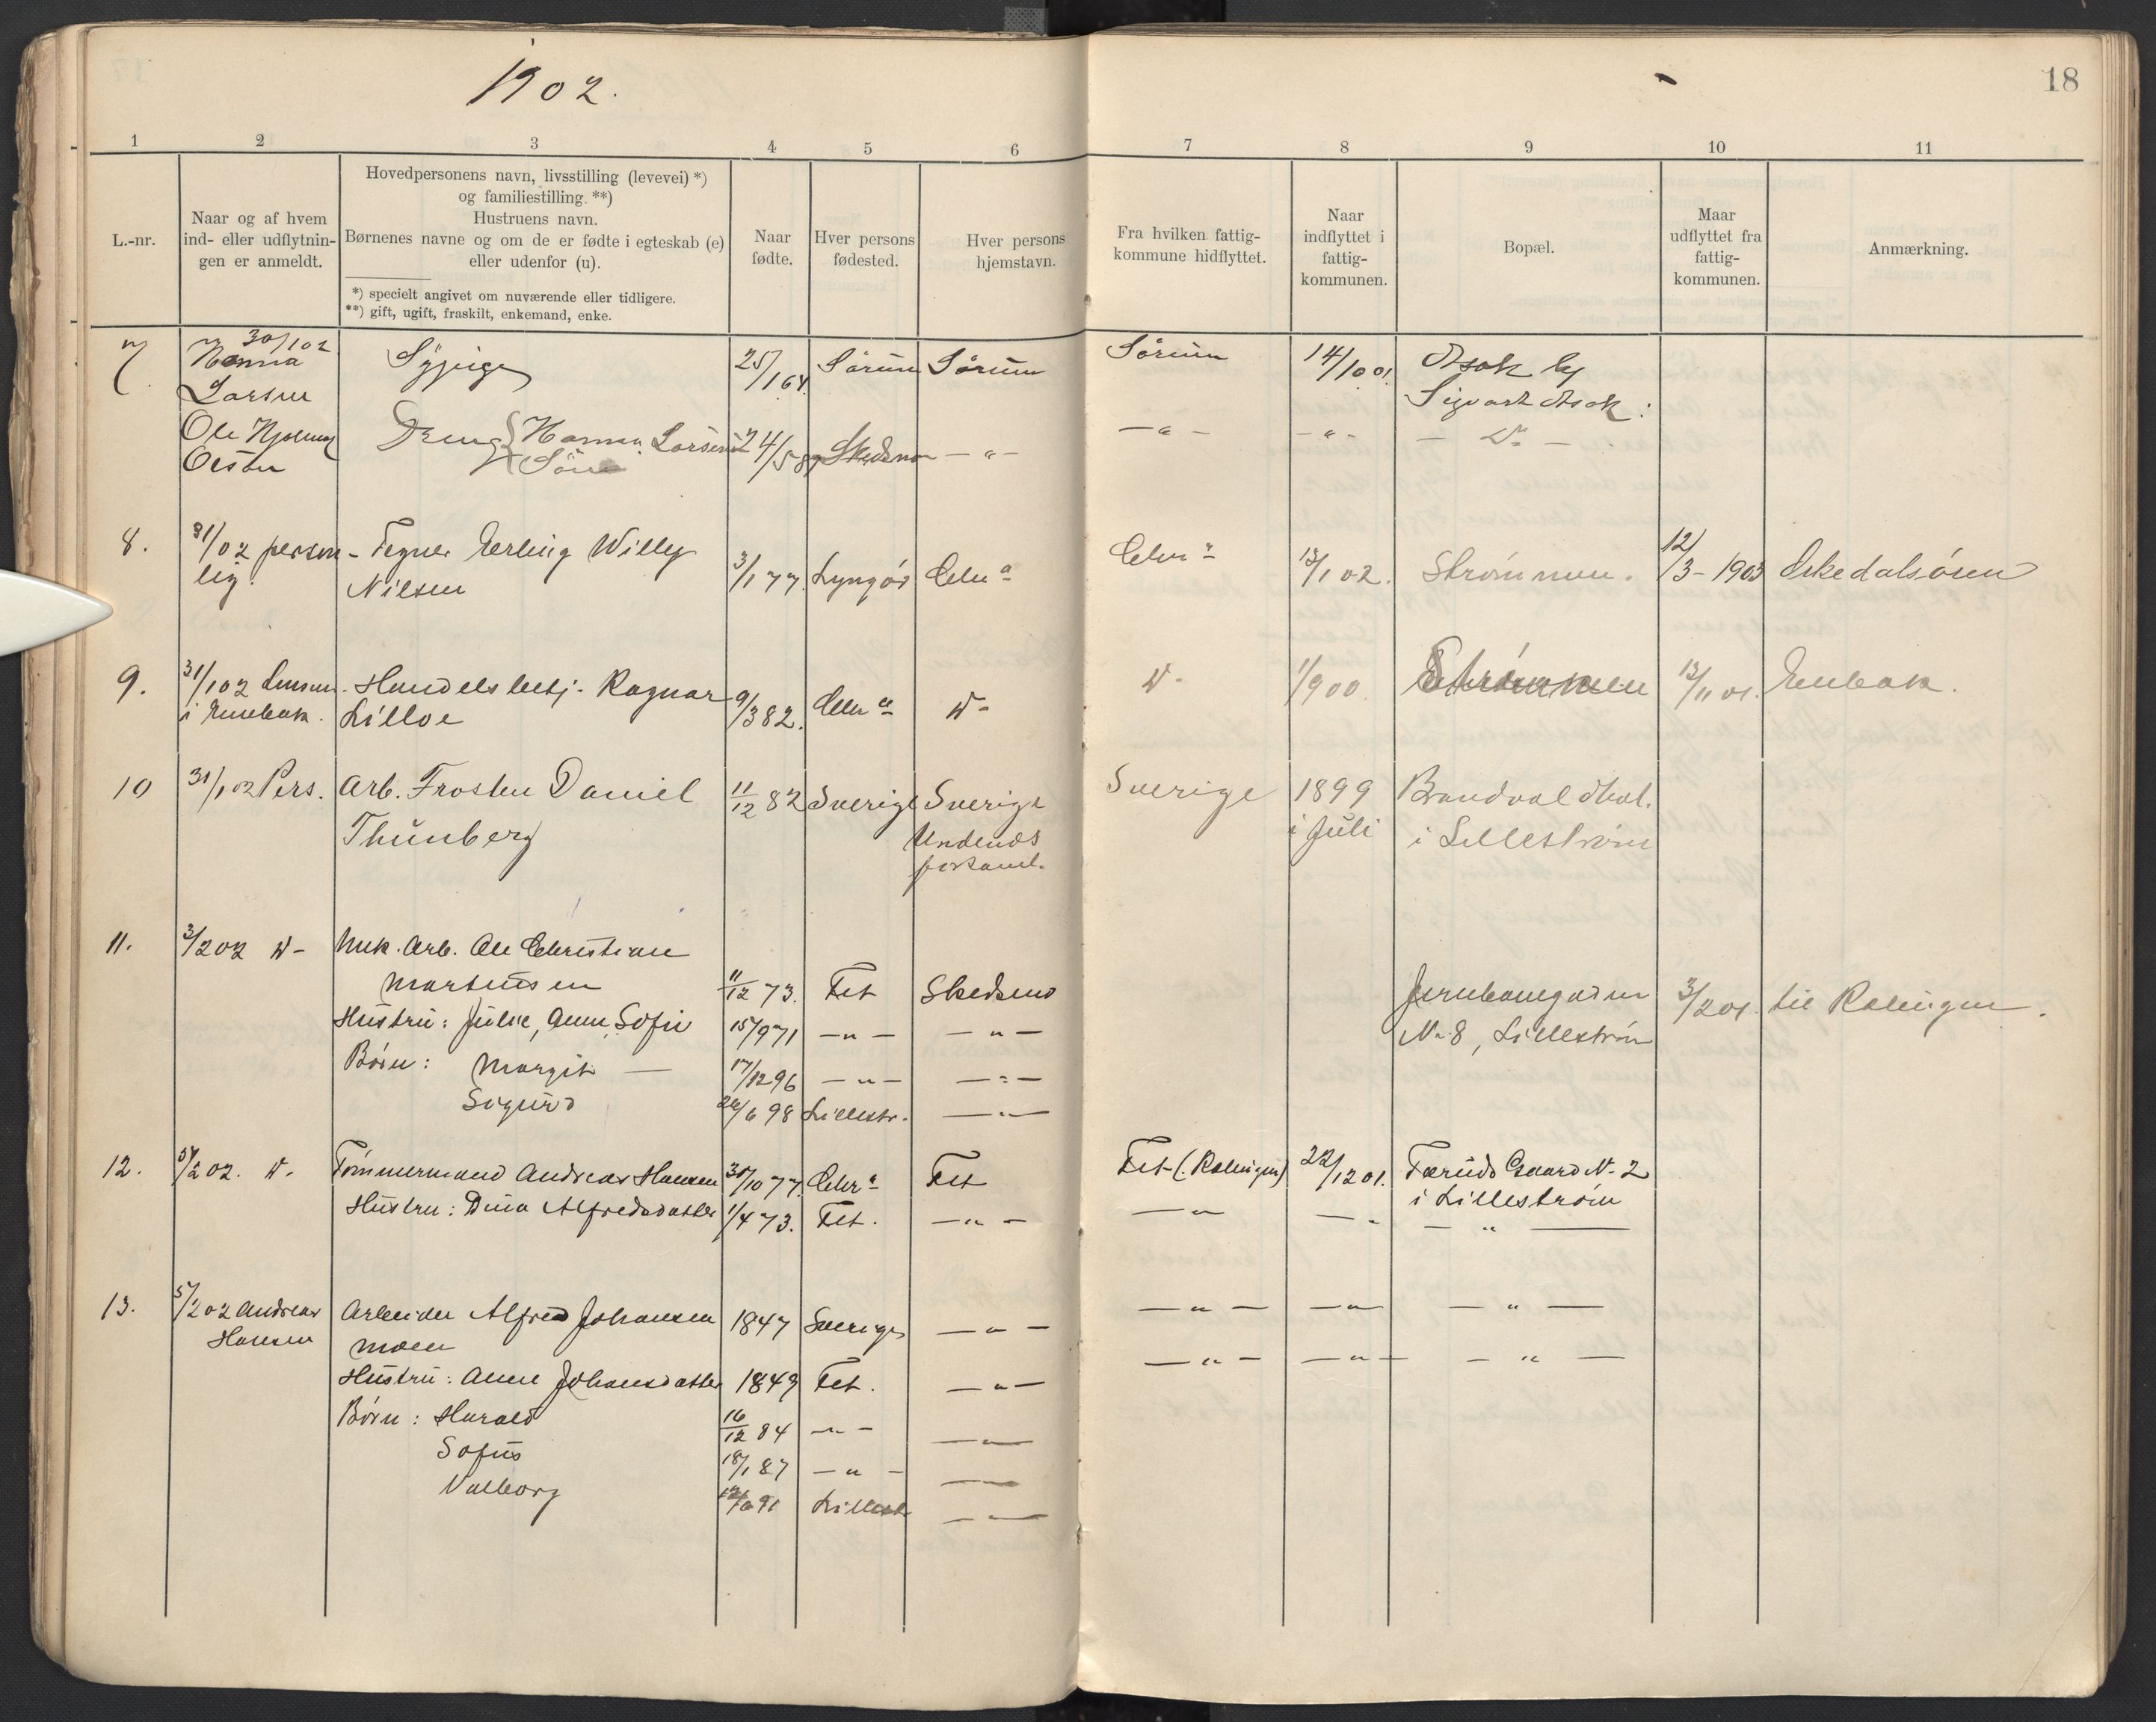 1902.
18
1 2 3 4 5 6 7 8 9 10 11
L.-nr.
Naar og af hvem
ind- eller udflytnin-
gen er anmeldt.
Hovedpersonens navn, livsstilling (levevei) *)
og familiestilling. **)
Hustruens navn.
Børnenes navne og om de er fødte i egteskab (e)
eller udenfor (u).
*) specielt angivet om nuværende eller tidligere.
**) gift, ugift, fraskilt, enkemand, enke.
Naar
fødte.
Hver persons
fødested.
Hver persons
hjemstavn.
Fra hvilken fattig-
kommune hidflyttet.
Naar
indflyttet i
fattig-
kommunen.
Bopæl.
Maar
udflyttet fra
fattig-
kommunen.
Anmærkning.
7. 30/1 02
Hanna Sypige 25/1 64. Sørum Sørum Sørum 14/10 01. Asak by
Larsen Sigvart Asak:
Ole Hjalmar Dreng Hanna Larsens 24/5 89 Skedsmo — " — — " — — " — — D° —
Søn
8. 31/02 person- Tegner Erling Willy 3/1 77. Lyngør Chr a Chr a 13/1 02. Strømmen. 12/3 - 1903 Askedalsøren
lig. Nilsen
9. 31/1 02 Lensm. Handelsbetj. Ragnar 9/3 82. Chr a D- D- 1/1 900 Strømmen 13/11 01. Enebak.
i Enebak. Lilloe
10 31/1 02 Pers. Arb. Frosten Daniel 11/12 82 Sverige Sverige Sverige 1899 Brandvoldhol.
Thunberg Undends i Juli i Lillestrøm
forsaml.
11. 3/2 02 D- Mek. Arb. Ole Christian
Martinsen 11/12 73. Fet Skedsmo Jernbanegaden 3/2 01. til Rælingen.
Hustru: Julie, Anne, Sofie 15/9 71 — " — — " — N. 8, Lillestrøm
Børn: Margit — 17/12 96 — " — — " —
Sigurd 26/6 98 Lillestr. — " —
12. 5/2 02. D- Tømmermand Andreas Hansen 31/10 77. Chr a Fet Fet (Rælingen) 22/12 01. Færuds Gaard N. 2
i Lillestrøm
Hustru: Dina Alfredsdatter 1/4 73. Fet. — " — — " — " — " —
13. 5/2 02 Andreas Arbeider Alfred Johansen 1847 Sverige — " — — " — — " — — " —
Hansen Moen
Hustru: Anne Johansdatter 1849 Fet. — " — — " — — " — — " —
Børn: Harald 16/12 84 — " — — " —
Sofus 18/1 87 — " — — " —
Valborg 12/6 91 Lillestr — " —